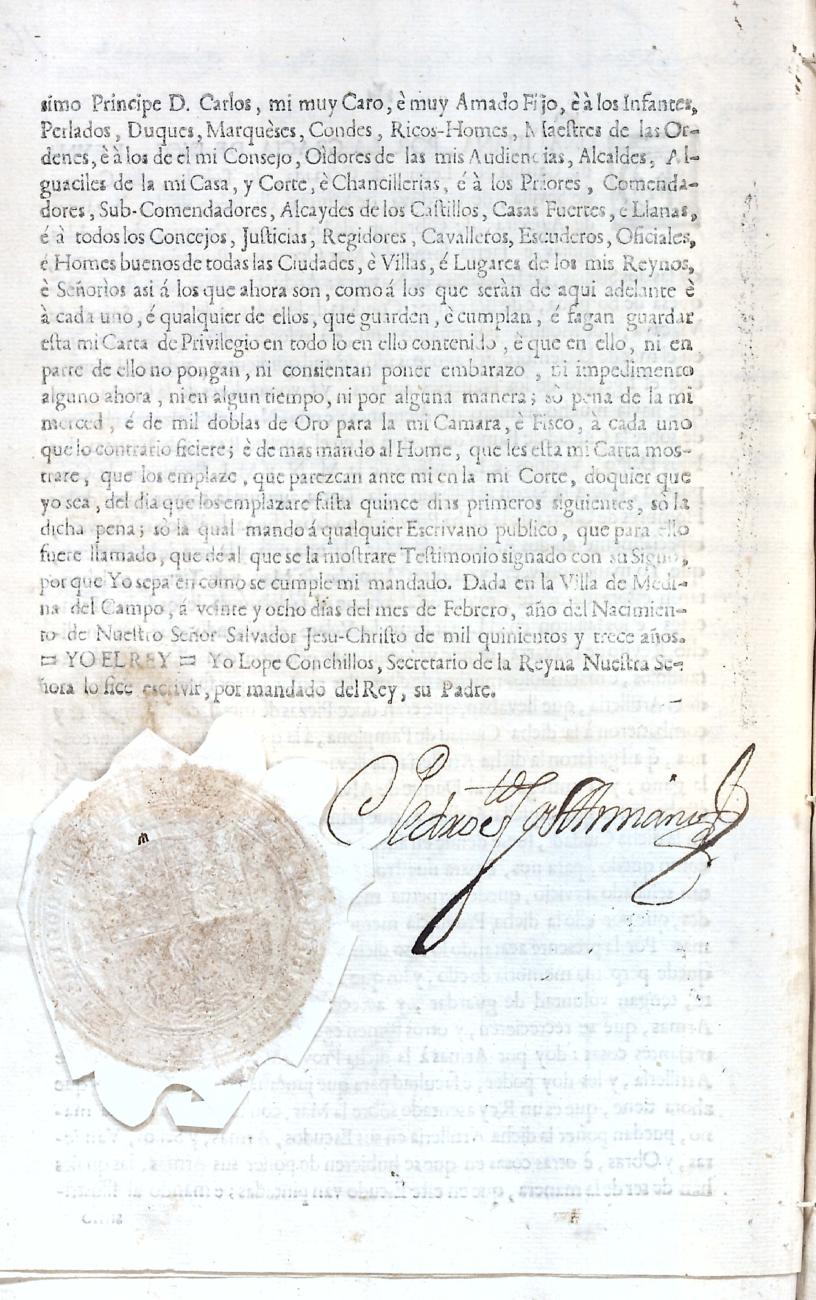 simo Principe D. Carlos, mi muy Caro, è muy Amado Fijo, è à los Infantes,
Perlados, Duques, Marquèses, Condes, Ricos-Homes, Maestres de las Or-
denes, è à los de el mi Consejo, Oìdores de las mis Audiencias, Alcaldes, Al-
guaciles de la mi Casa, y Corte, è Chancillerias, é à los Priores, Comenda-
dores, Sub-Comendadores, Alcaydes de los Castillos, Casas Fuertes, è Llanas,
é à todos los Concejos, Justicias, Regidores, Cavalleros, Escuderos, Oficiales,
é Homes buenos de todas las Ciudades, è Villas, é Lugares de los mis Reynos,
è Señorìos asi á los que ahora son, como á los que seràn de aqui adelante è
à cada uno, é qualquier de ellos, que guarden, è cumplan, é fagan guardar
esta mi Carta de Privilegio en todo lo en ello contenido, è que en ello, ni en
parte de ello no pongan, ni consientan poner embarazo, ni impedimento
alguno ahora, ni en algun tiempo, ni por alguna manera; sò pena de la mi
merced, é de mil doblas de Oro para la mi Camara, è Fisco, à cada uno
que lo contrario ficiere; è de mas mando al Home, que les esta mi Carta mos-
trare, que los emplaze, que parezcan ante mi en la mi Corte, doquier que
yo sea, del dia que los emplazare fasta quince dias primeros siguientes, sò la
dicha pena; sò la qual mando á qualquier Escrivano publico, que para ello
fuere llamado, que dé al que se la mostrare Testimonio signado con su Signo,
por que Yo sepa en como se cumple mi mandado. Dada en la Villa de Medi-
na del Campo, á veinte y ocho dias del mes de Febrero, año del Nacimien-
to de Nuestro Señor Salvador Jesu-Christo de mil quinientos y trece años.
= YO EL REY = Yo Lope Conchillos, Secretario de la Reyna Nuestra Se-
ñora lo fice escrivir, por mandado del Rey, su Padre.